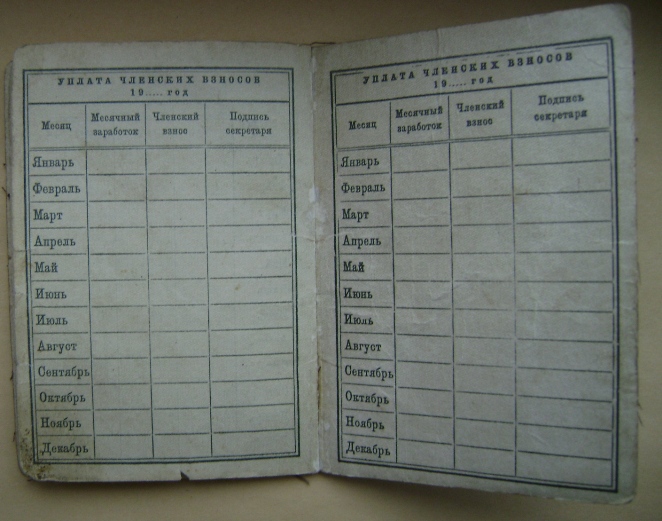 УПЛАТА ЧЛЕНСКИХ ВЗНОСОВ
19..... год
Месяц Месячный заработок Членский взнос Подпись секретаря
Январь
Февраль
Март
Апрель
Май
Июнь
Июль
Август
Сентябрь
Октябрь
Ноябрь
Декабрь
УПЛАТА ЧЛЕНСКИХ ВЗНОСОВ
19..... год
Месяц Месячный заработок Членский взнос Подпись секретаря
Январь
Февраль
Март
Апрель
Май
Июнь
Июль
Август
Сентябрь
Октябрь
Ноябрь
Декабрь